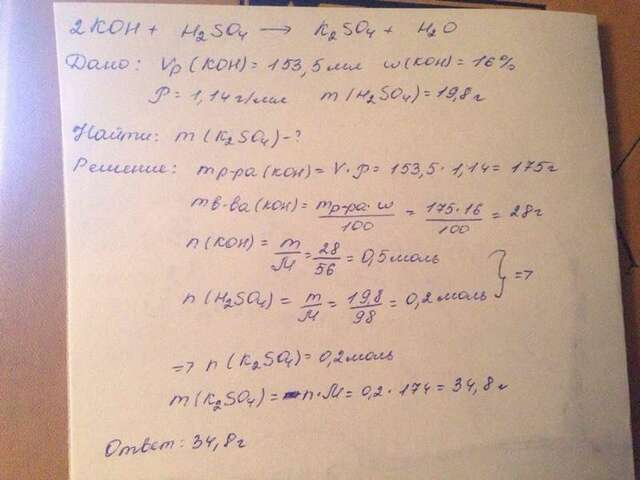 2KOH + H₂SO₄ → K₂SO₄ + H₂O
Дано: Vр(KOH) = 153,5мл w(KOH) = 16%
ρ = 1,14г/мл m(H₂SO₄) = 19,8г
Найти: m(K₂SO₄) - ?
Решение: mр-ра(KOH) = V·ρ = 153,5·1,14 = 175г
mв-ва(KOH) = mр-ра·w/100 = 175·16/100 = 28г
n(KOH) = m/M = 28/56 = 0,5моль
n(H₂SO₄) = m/M = 19,8/98 = 0,2моль } =>
=> n(K₂SO₄) = 0,2моль
m(K₂SO₄) = n·M = 0,2·174 = 34,8г
Ответ: 34,8г